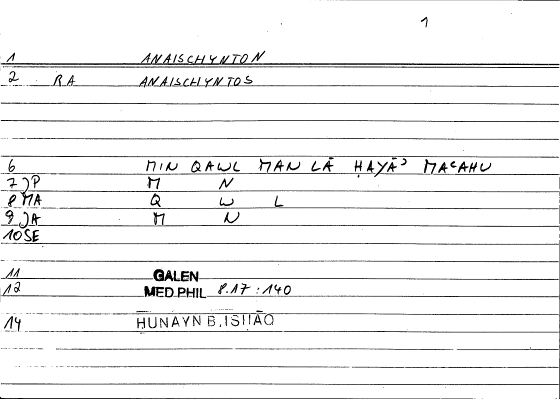 1
1 ANAISCHYNTON
2 RA ANAISCHYNTOS
6 MIN QAWL MAN LĀ ḤAYĀʾ MAʿAHU
7 JP M N
8 MA Q W L
9 JA M N
10 SE
11 GALEN
12 MED PHIL 8.17 : 140
14 HUNAYN B. ISḤĀQ